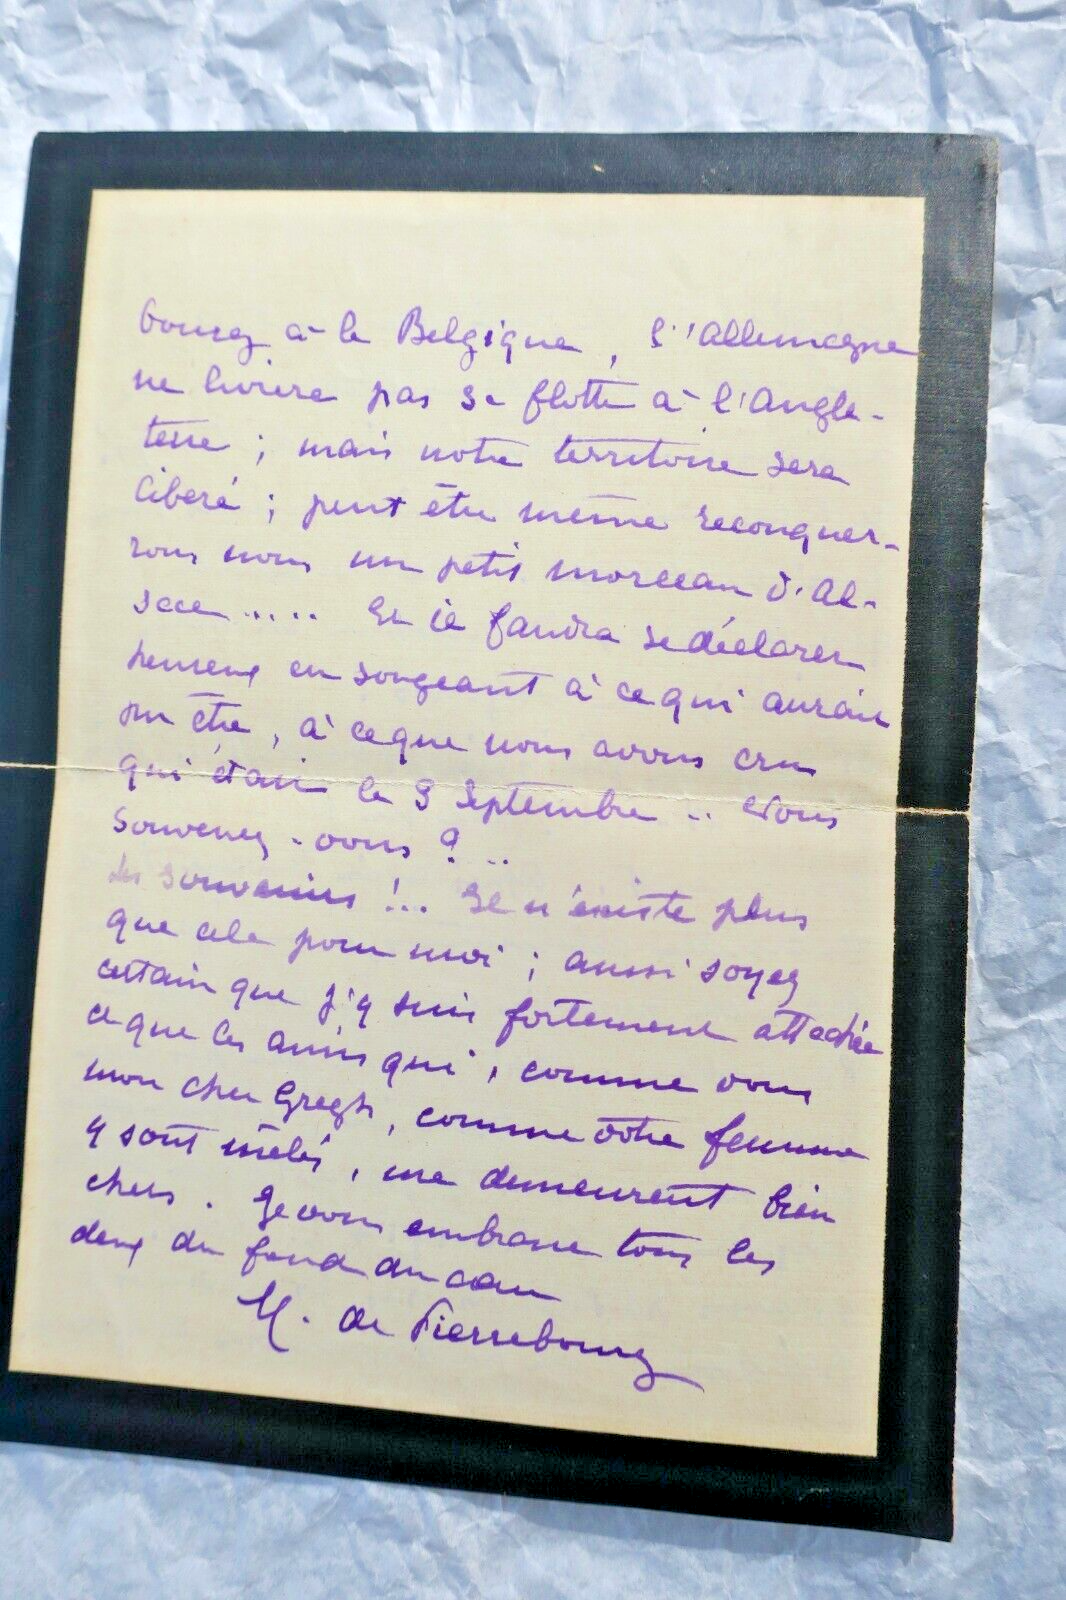 bourg à la Belgique, l'Allemagne
ne livrera pas sa flotte à l'Angle-
terre ; mais notre territoire sera
libéré ; peut être même reconquer-
rons nous un petit morceau d'Al-
sace ..... Et il faudra se déclarer
heureux en songeant à ce qui aurait
pu être, à ce que nous avons cru
qui était le 3 Septembre .. Vous
souvenez-vous ? ..
des souvenirs !.. Il n'existe plus
que cela pour moi ; aussi soyez
certain que j'y suis fortement attachée
et que les amis qui, comme vous
mon cher Gregh, comme votre femme
y sont mêlés, me demeurent bien
chers. Je vous embrasse tous les
deux du fond du cœur
M. de Pierrebourg